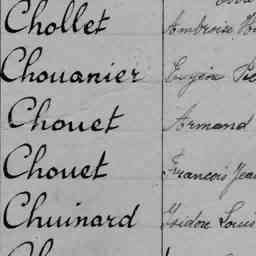 Chollet Ambroise
Chouanier Eugène
Chouet Armand
Chouet François Jean
Chuinard Isidore Louis